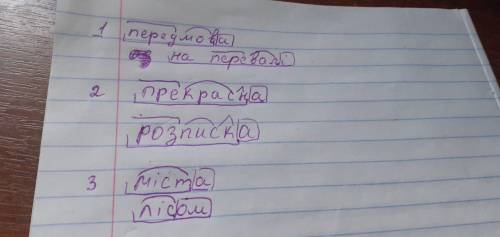 1 передмова
на перевалі
2 прекрасна
розписка
3 міста
лісом